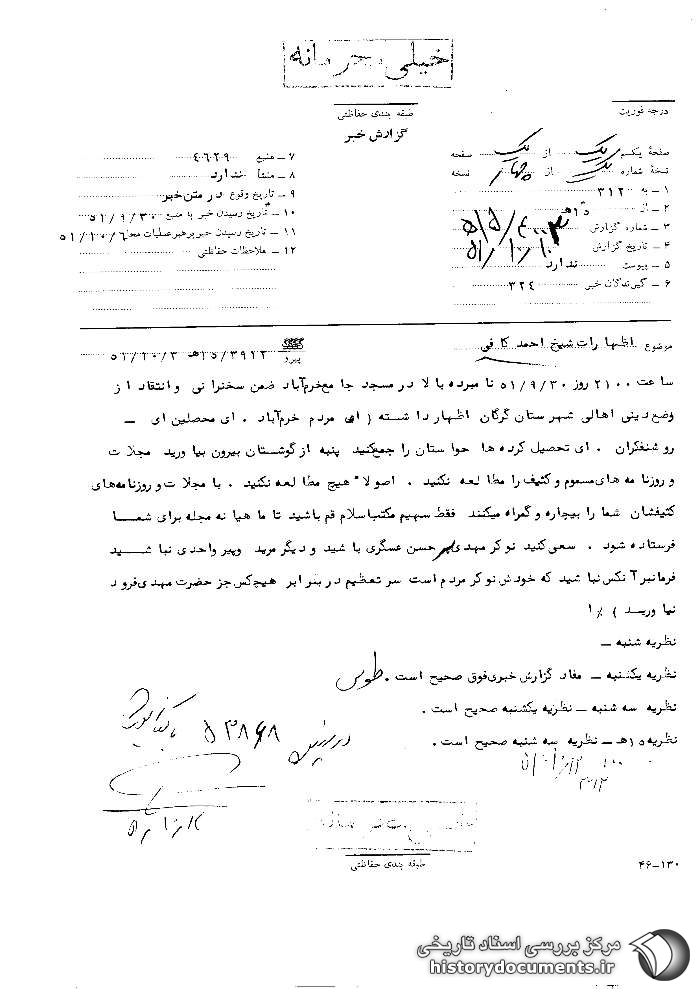 خیلی محرمانه
درجه فوریت
طبقه بندی حفاظتی
گزارش خبر
صفحهٔ یکم یک از یک صفحه
نسخهٔ شماره یک از چهار نسخه
۱ ـ به ۳۱۲
۲ ـ از ۱۵هـ
۳ ـ شماره گزارش
۴ ـ تاریخ گزارش
۵ ـ پیوست ندارد
۶ ـ گیرندگان خبر ۳۲۴
۷ ـ منبع ۴۶۲۹
۸ ـ منشأ ندارد
۹ ـ تاریخ وقوع در متن خبر
۱۰ ـ تاریخ رسیدن خبر به منبع ۵۱/۹/۳۰
۱۱ ـ تاریخ رسیدن خبر برهبر عملیات محل ۵۱/۱۰/۶
۱۲ ـ ملاحظات حفاظتی
موضوع اظهارات شیخ احمد کافی
پیرو ۱۵/۳۹۱۲هـ ۵۱/۱۰/۳
ساعت ۲۱۰۰ روز ۵۱/۹/۳۰ نامبرده بالا در مسجد جامع خرم‌آباد ضمن سخنرانی وانتقاد از
وضع دینی اهالی شهرستان گرگان اظهار داشته ( ای مردم خرم‌آباد . ای محصلین ای ـ
روشنفکران . ای تحصیل کرده ها حواستان را جمع کنید پنبه از گوشتان بیرون بیاورید مجلات
و روزنامه های مسموم وکثیف را مطالعه نکنید . اصولا" هیچ مطالعه نکنید . با مجلات و روزنامه‌های
کثیفشان شما را بیچاره وگمراه میکنند فقط سهیم مکتب اسلام قم باشید تا ماهیانه مجله برای شمـــا
فرستاده شود . سعی کنید نوکر مهدی پسر حسن عسگری باشید و دیگر مرید وپیر واحدی نباشـــید
فرمانبر آنکس نباشید که خودش نوکر مردم است سر تعظیم در برابر هیچکس جز حضرت مهدی فرود
نیاورید ) /۱
نظریه شنبه ـ
نظریه یکشنبه ـ مفاد گزارش خبری فوق صحیح است . طوس
نظریه سه شنبه ـ نظریه یکشنبه صحیح است .
نظریه ۱۵هـ ـ نظریه سه شنبه صحیح است .
طبقه بندی حفاظتی
۴۶-۱۳۰
مرکز بررسی اسناد تاریخی
historydocuments.ir